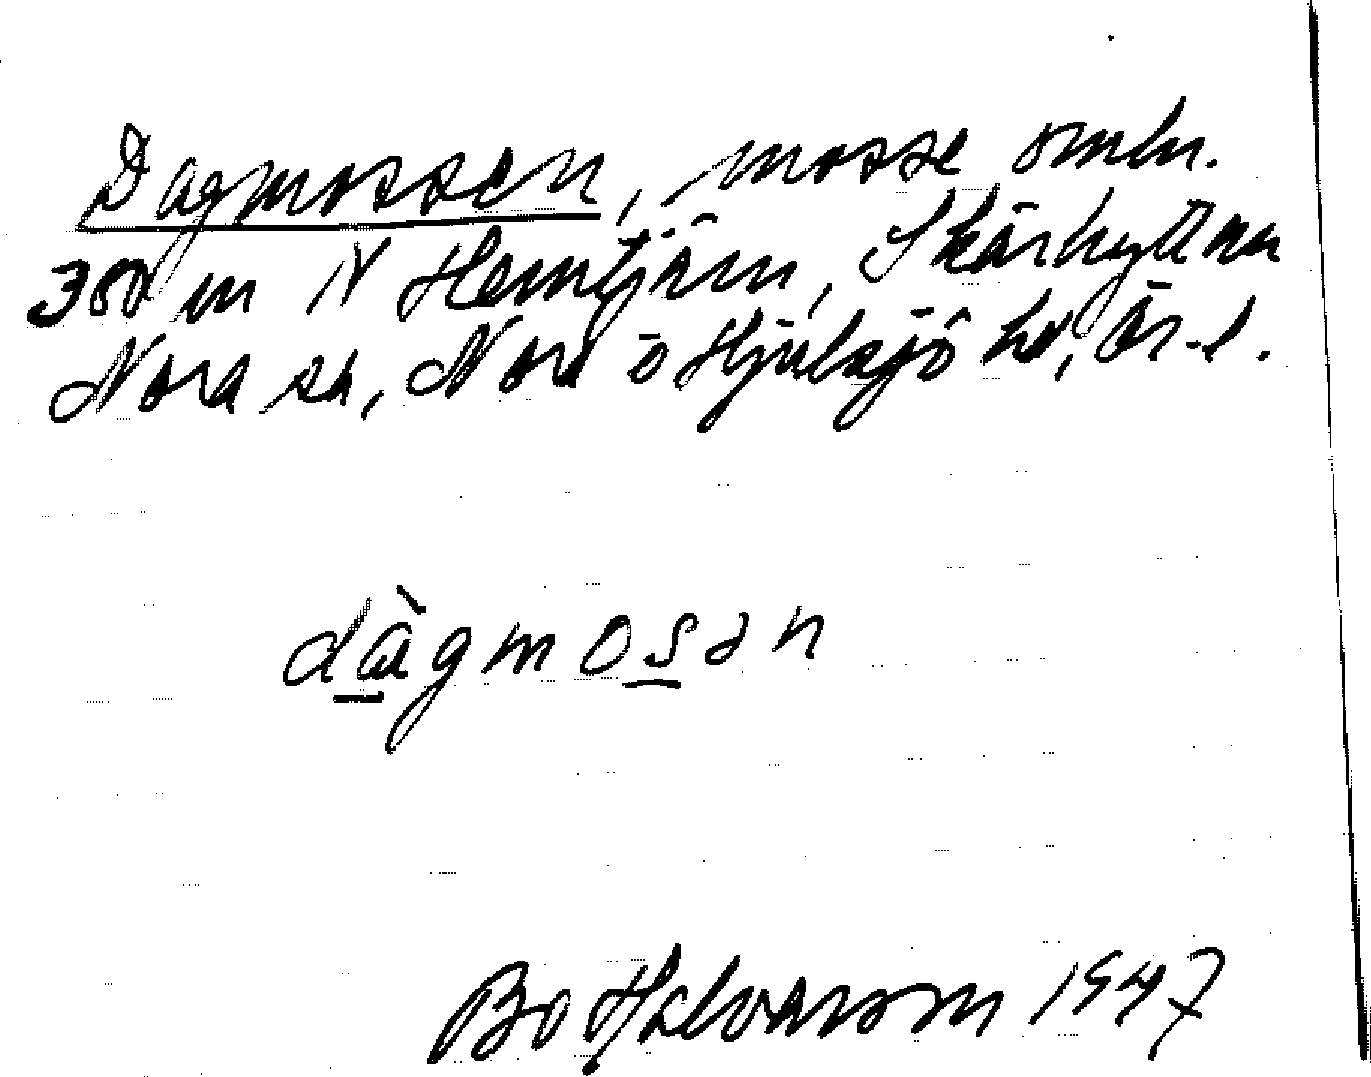 Dagmossen, mosse omkr.
350 m N Hemtjärn, Skärhyttan
Nora sn, Nora o Hjulsjö hd, Ör-l.
dàgmosən
Bo Halvarson 1947